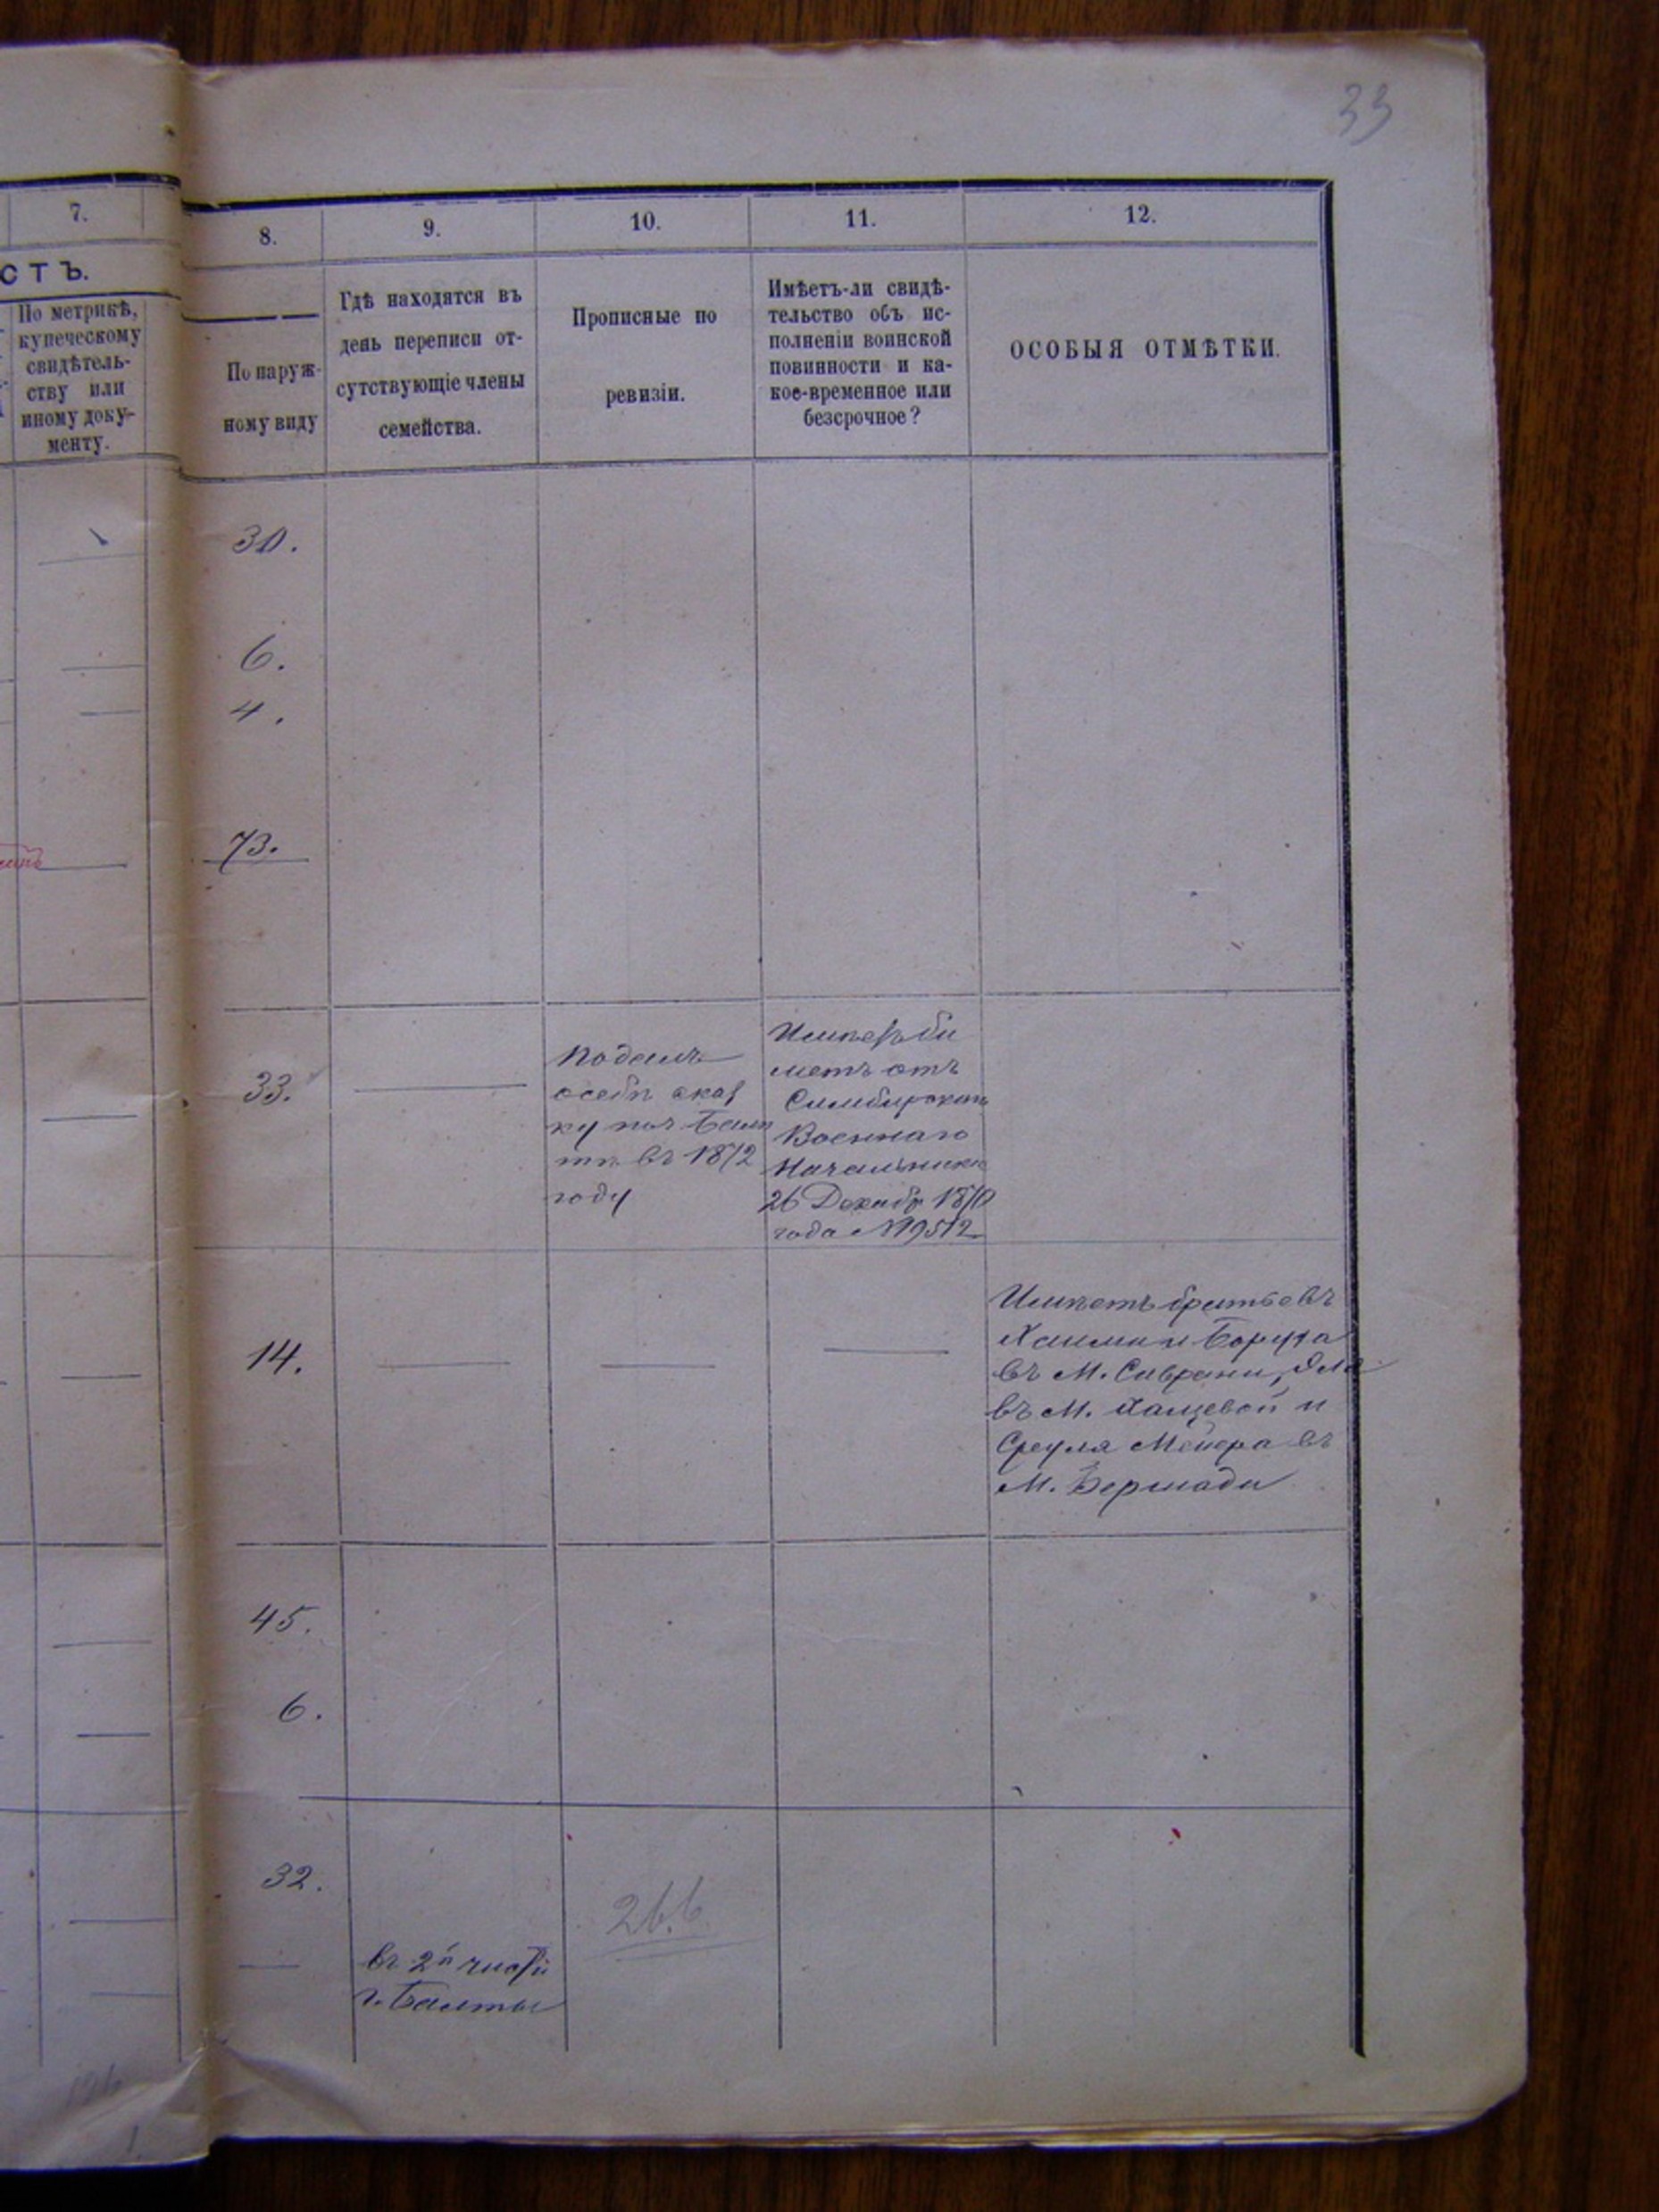 33
7.
8.
9.
10.
11.
12.
СТЪ.
По метрикѣ,
купеческому
свидѣтель-
ству или
иному доку-
менту.
По наруж-
ному виду
Гдѣ находятся въ
день переписи от-
сутствующіе члены
семейства.
Прописные по
ревизіи.
Имѣетъ-ли свидѣ-
тельство объ ис-
полненіи воинской
повинности и ка-
кое-временное или
безсрочное?
ОСОБЫЯ ОТМѢТКИ.
30.
6.
4.
73.
33.
Подалъ
особѣ сказ
ку по г. Бал
тѣ въ 1872
году
Имѣетъ би
летъ отъ
Симбирскаго
Военнаго
Начальника
26 Декабр
года №9512
14.
Имѣетъ братьевъ
Хаима и Боруха
въ М. Саврани,
въ М. и
Сруля Мейера въ
М. Бершади
45.
6.
32.
въ 2й части
г. Балты
266